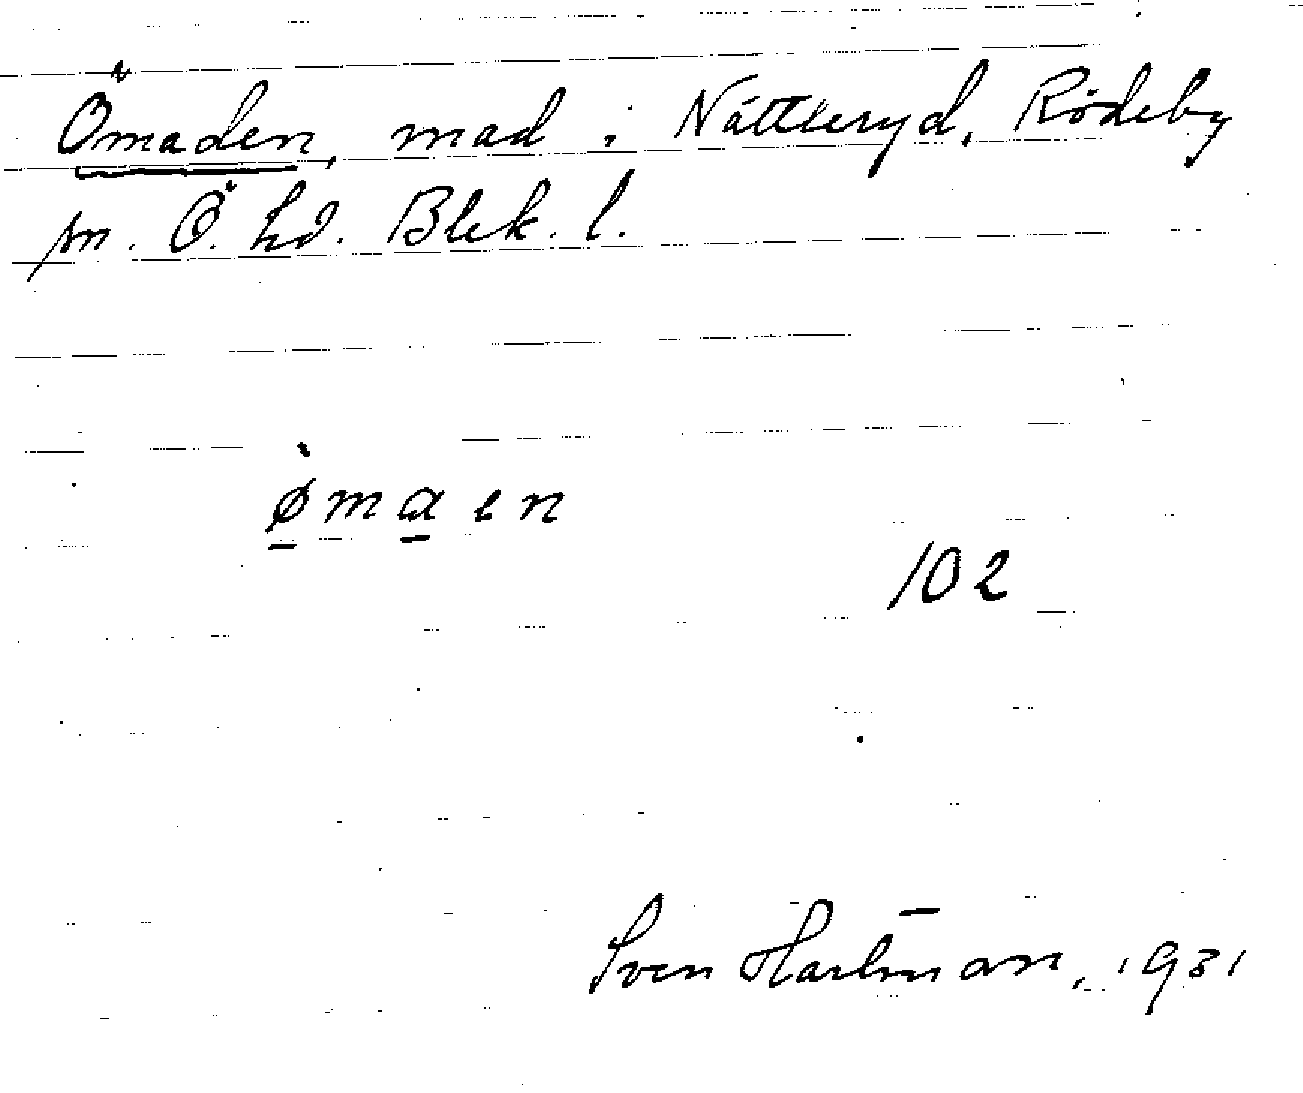 Ömaden, mad i Nättleryd, Rödeby
sn. Ö. hd. Blek. l.
ømaen
102
Sven Hartman, 1931